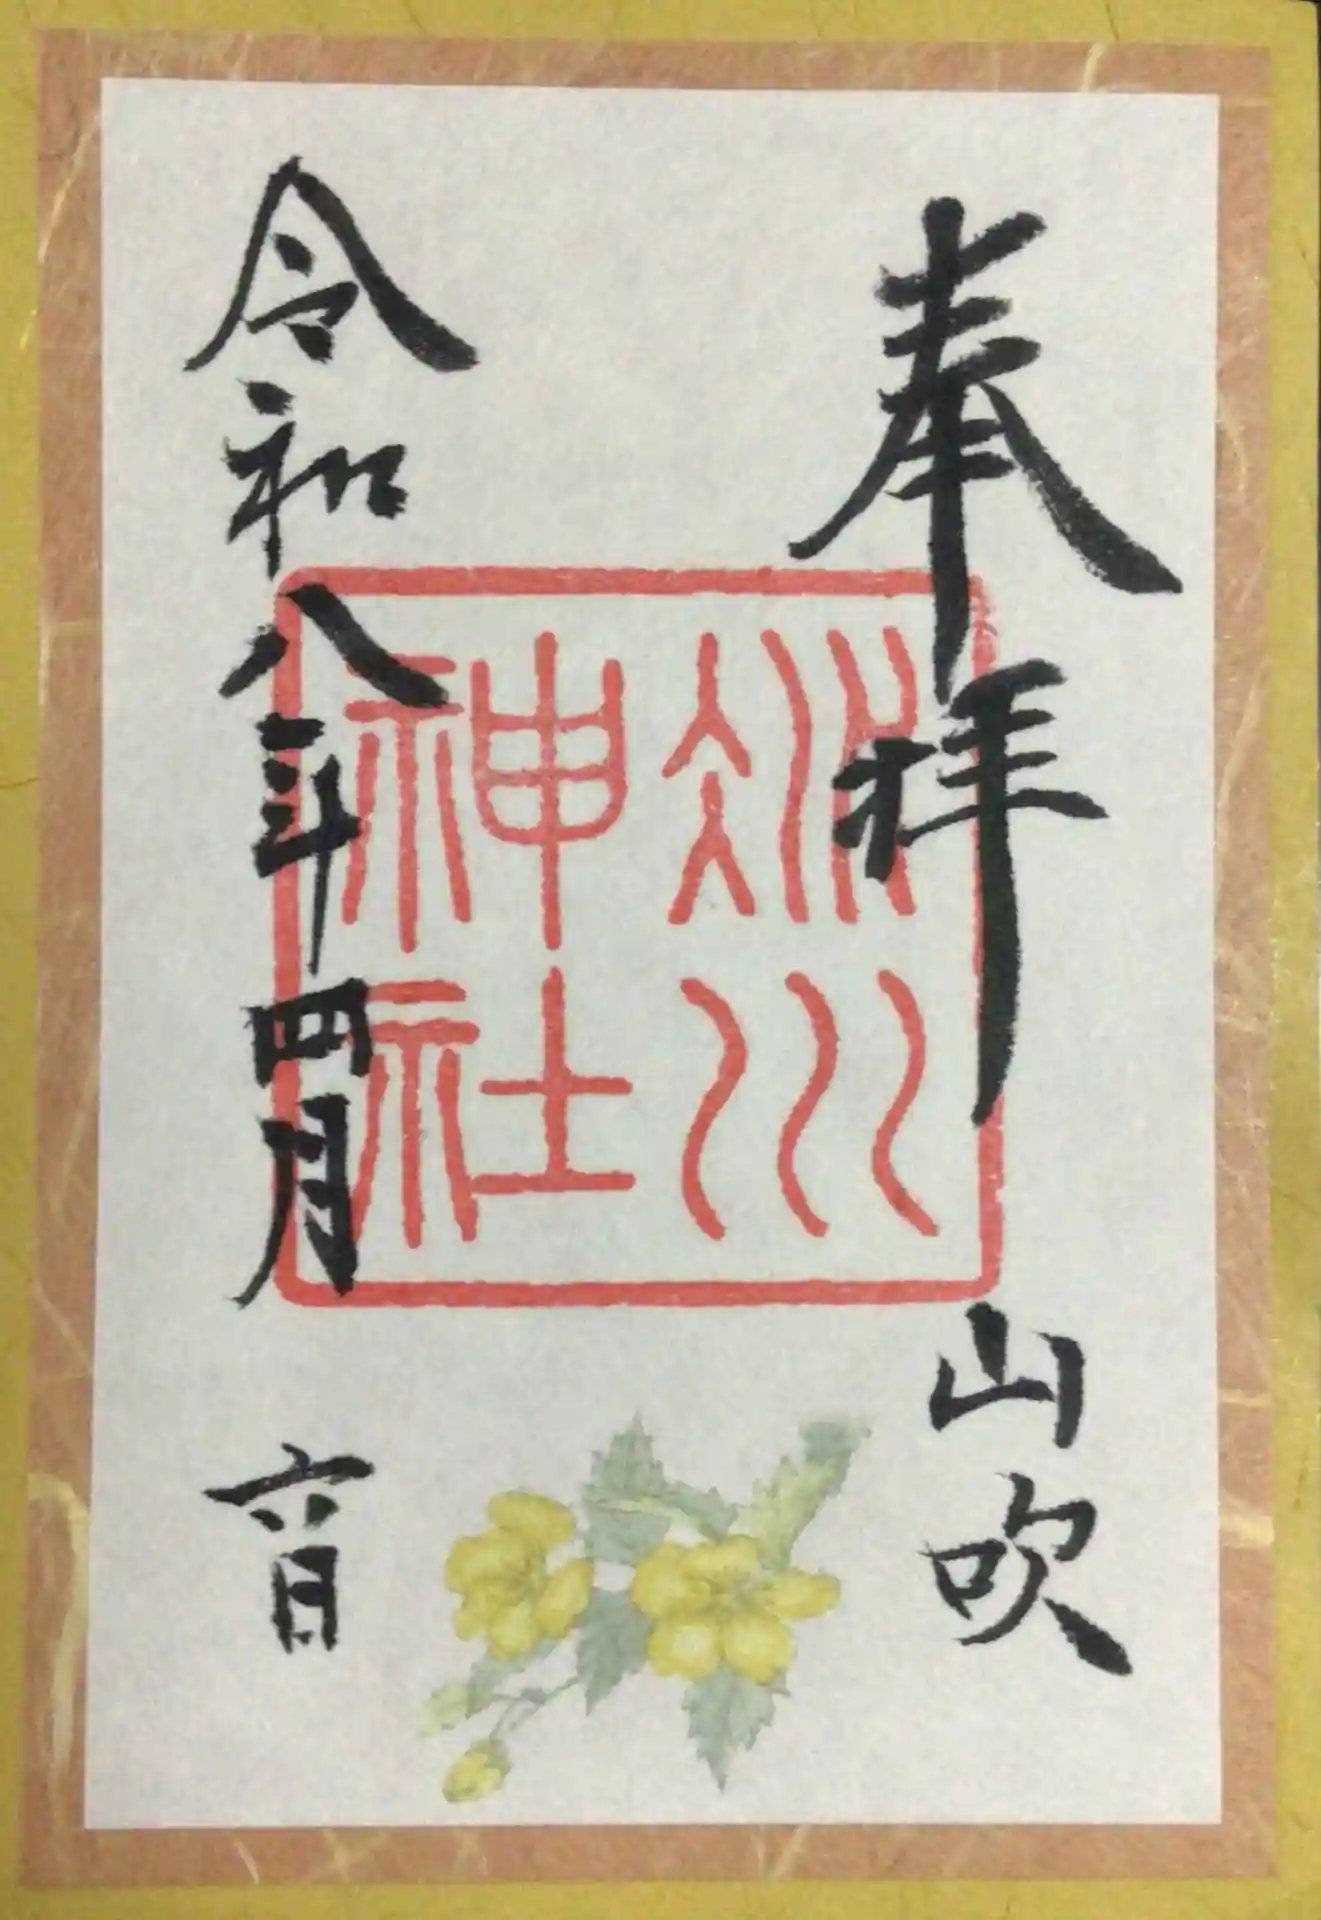 奉拝 山吹
冰川
神社
令和八年四月 六日